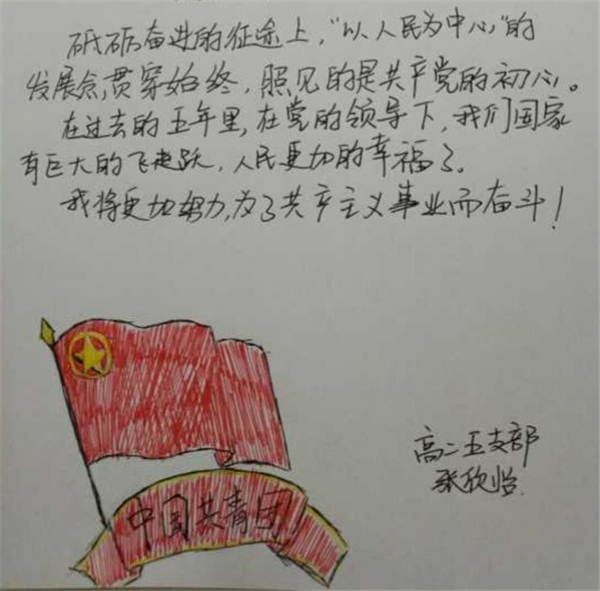 砥砺奋进的征途上，“以人民为中心”的
发展念贯穿始终，照见的是共产党的初心。
在过去的五年里，在党的领导下，我们国家
有巨大的飞跃，人民更加的幸福了。
我将更加努力，为了共产主义事业而奋斗！
高二五支部
张欣怡
中国共青团